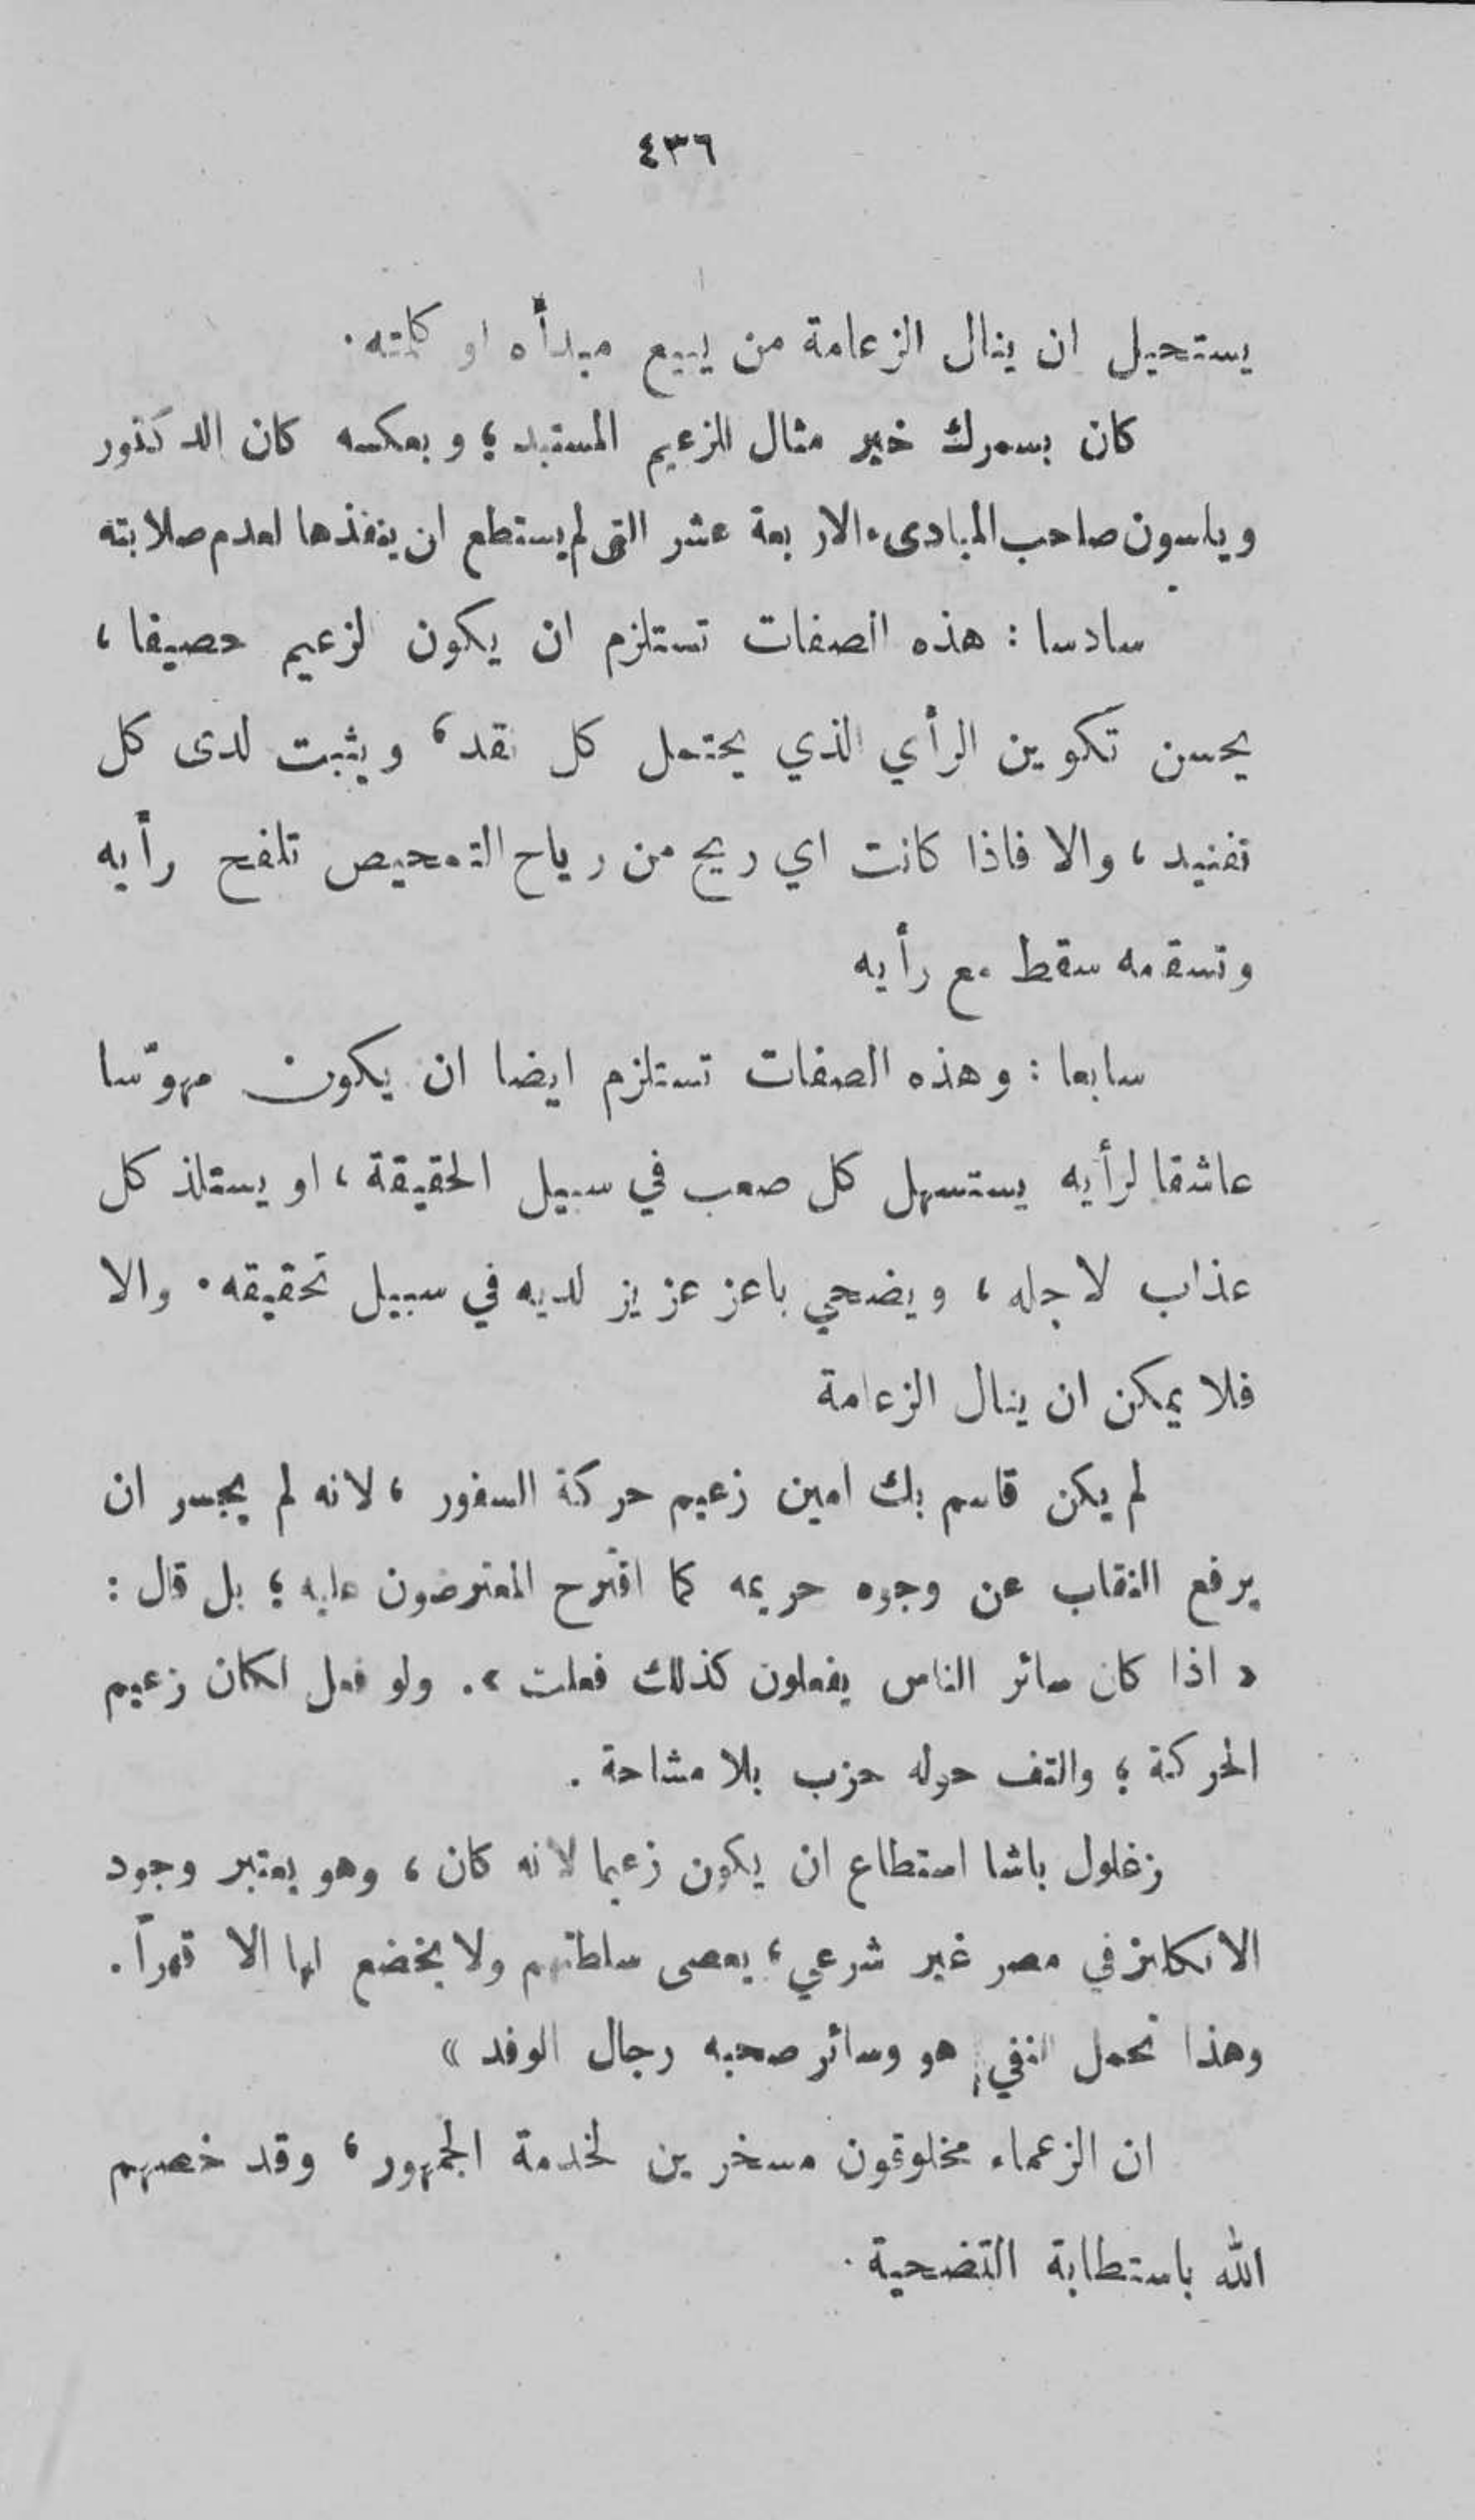 ٤٣٦
يستحيل ان ينال الزعامة من يبيع مبدأه او كلمته.
كان بسمرك خير مثال للزعيم المستبد؛ وبعكسه كان الدكتور
ويلسون صاحب المبادىء الاربعة عشر التي لم يستطع ان ينفذها لعدم صلابته
سادسا : هذه الصفات تستلزم ان يكون لزعيم حصيفا ،
يحسن تكوين الرأي الذي يحتمل كل نقد ، ويثبت لدى كل
تفنيد ، والا فاذا كانت اي ريح من رياح التمحيص تلفح رأيه
وتسقمه سقط مع رأيه
سابعا : وهذه الصفات تستلزم ايضا ان يكون مهوّسا
عاشقا لرأيه يستسهل كل صعب في سبيل الحقيقة ، او يستلذ كل
عذاب لاجله ، ويضحي باعز عزيز لديه في سبيل تحقيقه . والا
فلا يمكن ان ينال الزعامة
لم يكن قاسم بك امين زعيم حركة السفور ، لانه لم يجسر ان
يرفع النقاب عن وجوه حريمه كما اقترح المعترضون عليه ؛ بل قال :
« اذا كان سائر الناس يفعلون كذلك فعلت » . ولو فعل لكان زعيم
الحركة ؛ والتف حوله حزب بلا مشاحة .
زغلول باشا استطاع ان يكون زعيما لانه كان ، وهو يعتبر وجود
الانكليز في مصر غير شرعي ، يعصى سلطتهم ولا يخضع لها الا قهراً .
وهذا تحمل النفي هو وسائر صحبه رجال الوفد »
ان الزعماء مخلوقون مسخرين لخدمة الجمهور ، وقد خصهم
الله باستطابة التضحية .